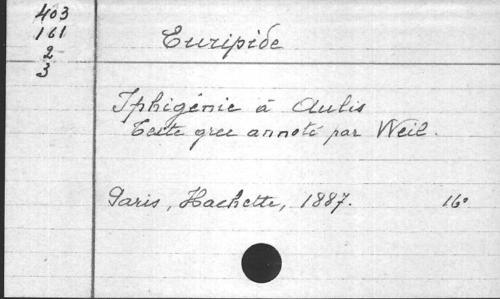 403
161
2
3
Euripide
Iphigénie à Aulis
Texte grec annoté par Weil.
Paris, Hachette, 1887. 16°